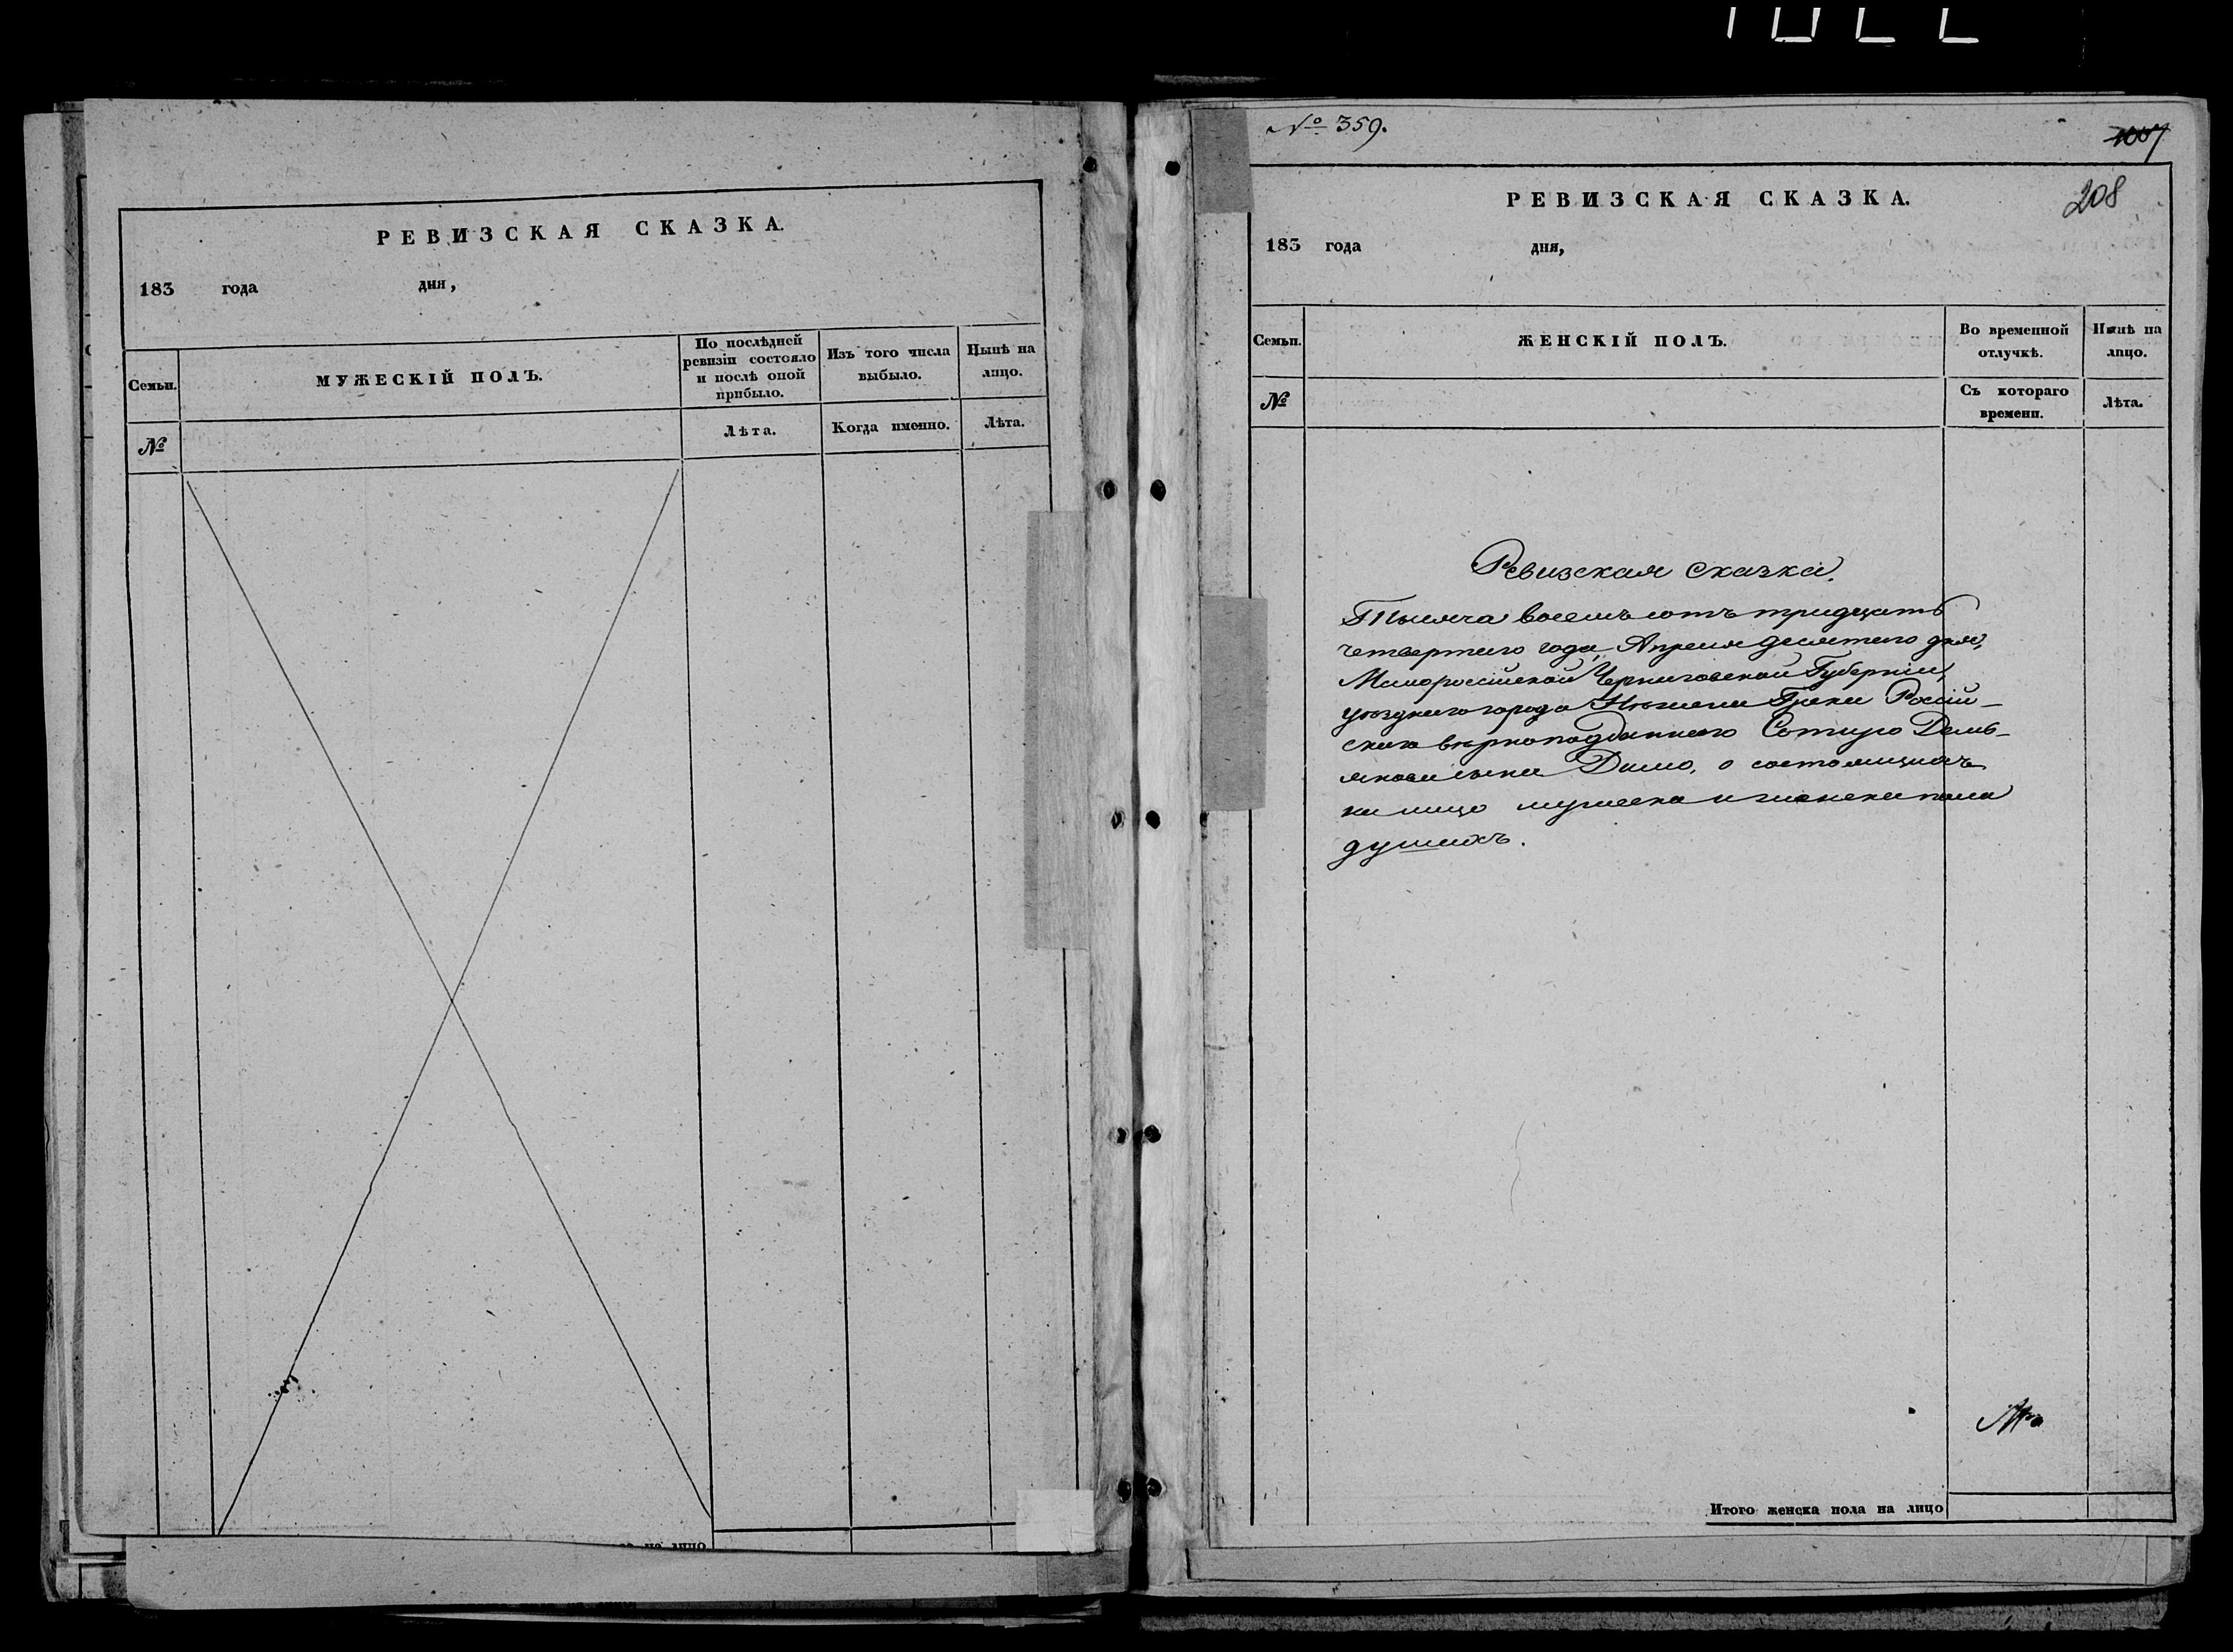 РЕВИЗСКАЯ СКАЗКА.
183 года дня,
Семьи.
МУЖЕСКІЙ ПОЛЪ.
По послѣдней
ревизіи состояло
и послѣ оной
прибыло.
Изъ того числа
выбыло.
Нынѣ на
лицо.
№
Лѣта.
Когда именно.
Лѣта.
на лицо
№ 359.
208
РЕВИЗСКАЯ СКАЗКА.
183 года дня,
Семьи.
ЖЕНСКІЙ ПОЛЪ.
Во временной
отлучкѣ.
Нынѣ на
лицо.
№
Съ котораго
времени.
Лѣта.
Ревизская сказка.
Тысяча восемьсотъ тридцать
четвертаго года, Апреля десятаго дня,
Малороссійской Черниговской Губерніи,
уѣзднаго города Нѣжина Грека Россій-
скаго вѣрноподданнаго Сотиро Демь-
Димо, о состоящихъ
на лицо мужеска и женска пола
душахъ.
Итого женска пола на лицо